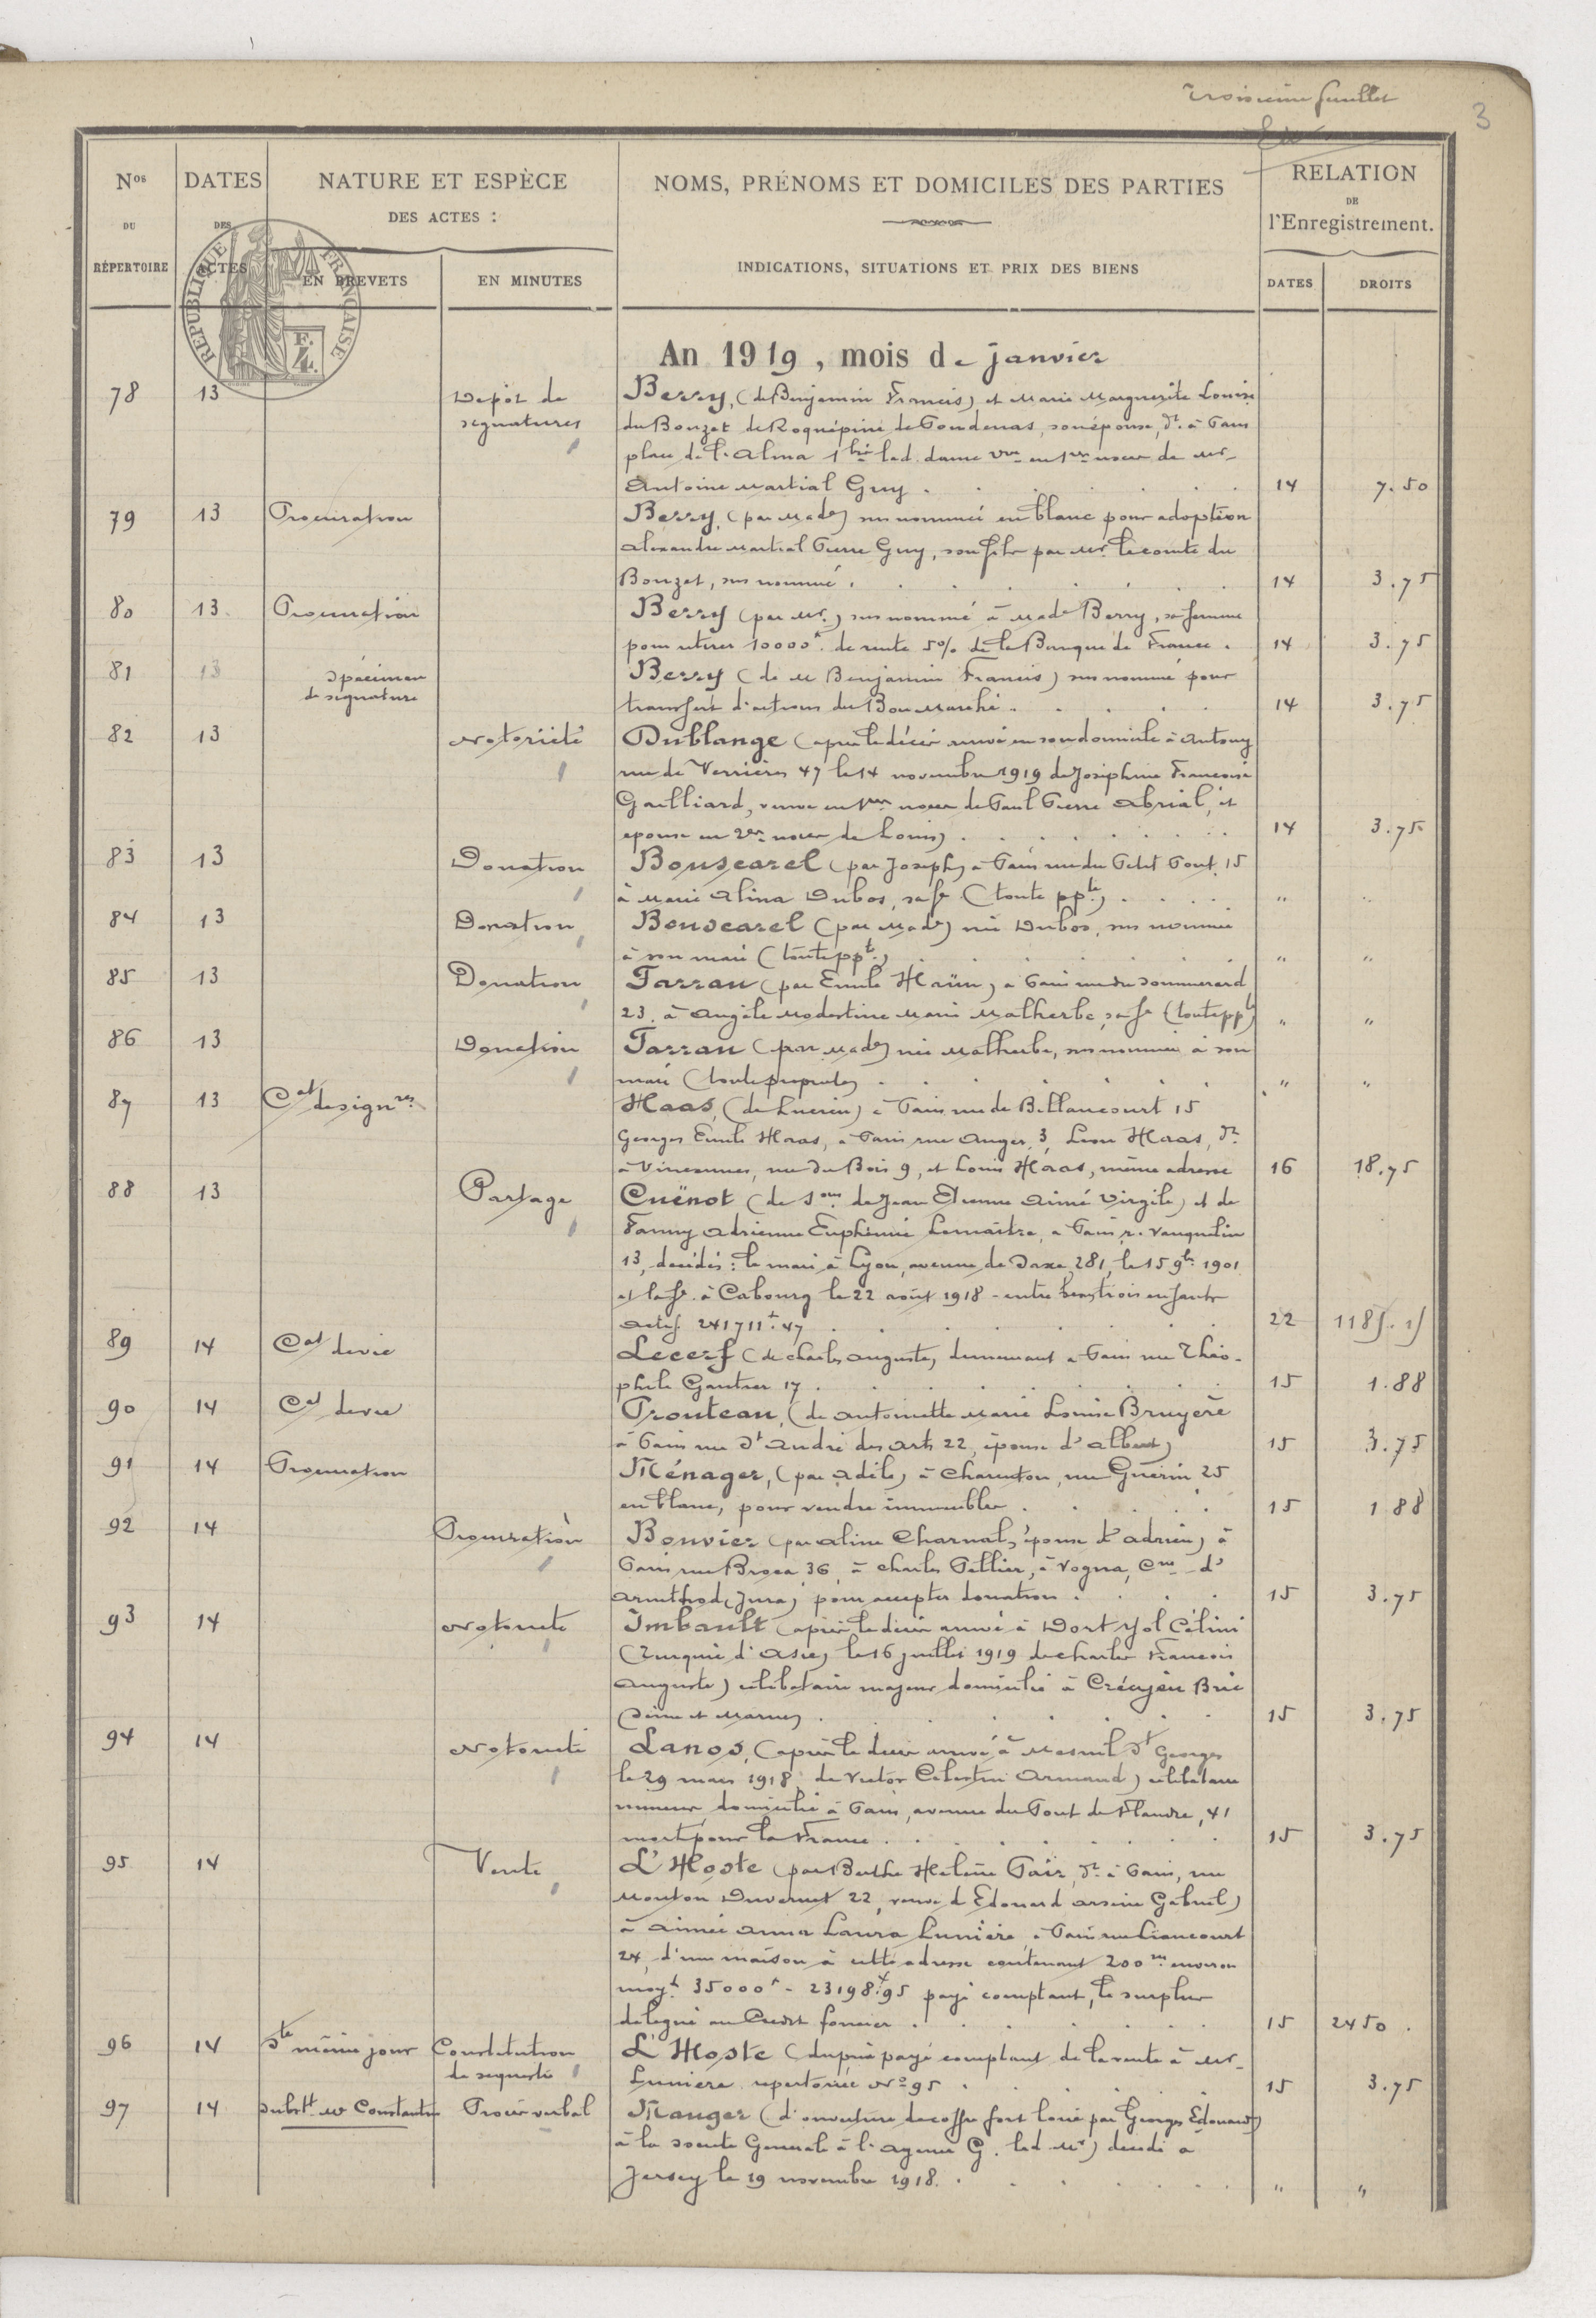 troisième feuillet
3
Nos DU RÉPERTOIRE
DATES DES ACTES
NATURE ET ESPÈCE DES ACTES :
EN BREVETS
EN MINUTES
NOMS, PRÉNOMS ET DOMICILES DES PARTIES
INDICATIONS, SITUATIONS ET PRIX DES BIENS
RELATION DE l'Enregistrement.
DATES
DROITS
RÉPUBLIQUE FRANÇAISE
An 1919, mois de janvier
78 13 Dépôt de signatures Berry, (de Benjamin Francis) et Marie Marguerite Louise
du Bouzet de Roquépine de Poudenas, son épouse, dt. à Paris
place de l'Alma 1 lad. dame vve en 1ères noces de Mr
Antoine Martial Guy . 14 7.50
79 13 Procuration Berry, (par Made) sus nommée en blanc pour adoption
Alexandre Martial Pierre Guy, son fils par Mr. le comte du
Bouzet, sus nommé . 14 3.75
80 13 Procuration Berry (par Mr.) sus nommé à Made Berry, sa femme
pour retirer 10000f. de rente 5% de la Banque de France . 14 3.75
81 13 Spécimen de signature Berry (de M Benjamin Francis) sus nommé pour
transfert d'actions du Bon Marché . 14 3.75
82 13 Notoriété Dublange (après le décès arrivé en son domicile à Antony
rue de Verrières 47 le 14 novembre 1919 de Joséphine Françoise
Gailliard, veuve en 1ères noces de Paul Pierre Abrial, et
épouse en 2es noces de Louis) . 14 3.75
83 13 Donation Bouscarel (par Joseph) à Paris rue du Petit Pont 15
à Marie Alina Dubos, sa fe (toute ppté) . " "
84 13 Donation Bouscarel (par Made) née Dubos, sus nommée
à son mari (toute ppté) " "
85 13 Donation Tarrau (par Emile Haüm) à Paris rue du Sommerard
23. à Angèle Modestine Marie Malherbe, sa fe (toute ppté) " "
86 13 Donation Tarrau (par Made) née Malherbe, sus nommée à son
mari (toute propriété) . " "
87 13 Cat de signres Haas, (de Lucien) à Paris rue de Billancourt 15
Georges Emile Haas, à Paris rue Auger 3, Léon Haas, dt
à Vincennes, rue du Bois 9, et Louis Haas, même adresse 16 18.75
88 13 Partage Cuënot (de son de Jean Etienne Aimé Virgile) et de
Fanny Adrienne Euphémie Lemaître, à Paris r. Vauquelin
13, décédés : le mari à Lyon, avenue de Saxe 281, le 15 9bre 1901
et la fe. à Cabourg le 22 août 1918 - entre leurs trois enfants
Actif 241711f.47 22 1185.25
89 14 Cat de vie Lecerf (de Charles Auguste) demeurant à Paris rue Théo-
phile Gautier 17 . 15 1.88
90 14 Cat de vie Prouteau, (de Antoinette Marie Louise Bruyère
à Paris rue St André des Arts 22, épouse d'Albert) 15 3.75
91 14 Procuration Ménager, (par Adèle) à Charenton, rue Guérin 25
en blanc, pour vendre immeubles . 15 1 88
92 14 Procuration Bouvier (par Aline Charnal, épouse d'Adrien) à
Paris rue Broca 36, à Charles Pellier, à Vogna, Cne d'
Arinthod (Jura) pour accepter donation . 15 3.75
93 14 Notoriété Imbault (après le décès arrivé à Dort Yol Célini
(Turquie d'Asie) le 16 juillet 1919 de Charles François
Auguste) célibataire majeur domicilié à Crécy en Brie
(Seine et Marne) . 15 3.75
94 14 Notoriété Lanos, (après le décès arrivé à Mesnil St Georges
le 29 mars 1918 de Victor Célestin Armand) célibataire
mineur domicilié à Paris, avenue du Pont de Flandre, 41
mort pour la France . 15 3.75
95 14 Vente L'Hoste (par Berthe Hélène Pair, dt à Paris, rue
Mouton Duvernet 22, veuve d'Edouard Arsène Gabriel)
à Aimée Anna Laura Lumière, à Paris rue Liancourt
24, d'une maison à cette adresse contenant 200m. environ
moyt. 35000f - 23198f.95 payé comptant, le surplus
délégué au Crédit foncier . 15 2450 .
96 14 dte même jour Constitution de séquestre L'Hoste (du prix payé comptant de la vente à Mr
Lumière répertoriée No 95 . 15 3.75
97 14 substt Me Constantin Procès verbal Mauger (d'ouverture de coffre fort loué par Georges Edouard)
à la Société Générale à l'agence G. led. Mr) décédé à
Jersey le 19 novembre 1918. . " "